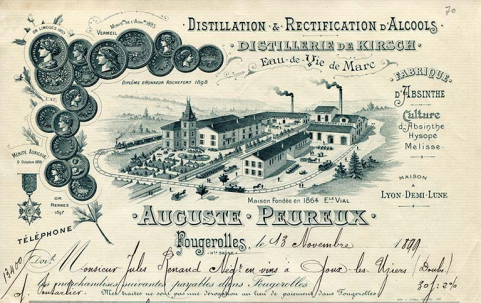 70
DISTILLATION & RECTIFICATION D'ALCOOLS
DISTILLERIE DE KIRSCH
Eau-de-Vie de Marc
FABRIQUE
D'ABSINTHE
Culture
d'Absinthe
Hysope
Mélisse
MAISON
A
LYON-DEMI-LUNE
VERMEIL
DIPLÔME D'HONNEUR ROCHEFORT 1898
MÉRITE AGRICOLE
OR
RENNES
1897
TÉLÉPHONE
MAISON FONDÉE EN 1864 ELE VIAL
AUGUSTE PEUREUX
Fougerolles, le 13 Novembre 1899
(HTE SAÔNE)
Doit Monsieur Jules Renaud Négt en vins à Joux-les-Ujiers (Doubs)
les marchandises suivantes payables dans Fougerolles 30j. 2%
Pontarlier
Mes traites ne sont pas une dérogation au lieu de paiement dans Fougerolles